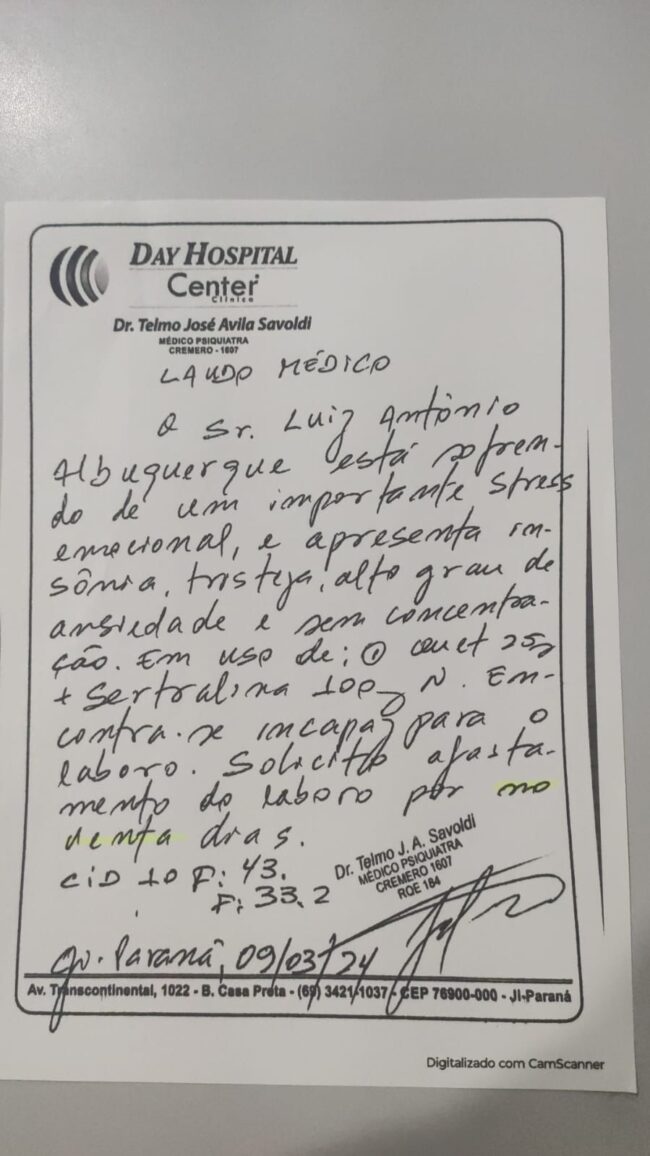 DAY HOSPITAL
Center
Clínico
Dr. Telmo José Avila Savoldi
MÉDICO PSIQUIATRA
CREMERO - 1607
LAUDO MÉDICO
O Sr. Luiz Antônio
Albuquerque está sofren-
do de um importante stress
emocional, e apresenta in-
sônia, tristeza, alto grau de
ansiedade e sem concentra-
ção. Em uso de:
+ Sertralina 100 N. En-
contra-se incapaz para o
laboro. Solicito afasta-
mento do laboro por no
venta dias.
CID 10 F: 43.
F: 33.2
Dr. Telmo J. A. Savoldi
MÉDICO PSIQUIATRA
CREMERO 1607
RQE 184
Paraná, 09/03/24
Av. Transcontinental, 1022 - B. Casa Preta - (69) 3421-1037 - CEP 76900-000 - Ji-Paraná
Digitalizado com CamScanner